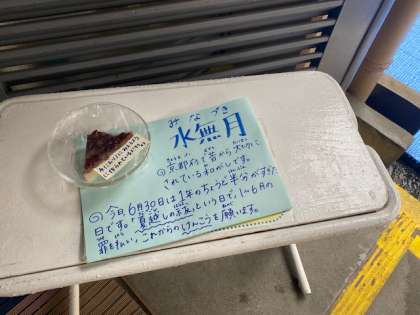 みなづき
水無月
◎京都府で昔から大切に
されている和がしです。
◎今日6月30日は1年のちょうど半分がすぎた
日です。「夏越しの祓」という日で、1〜6月の
罪をはらい、これからのけんこうを願います。